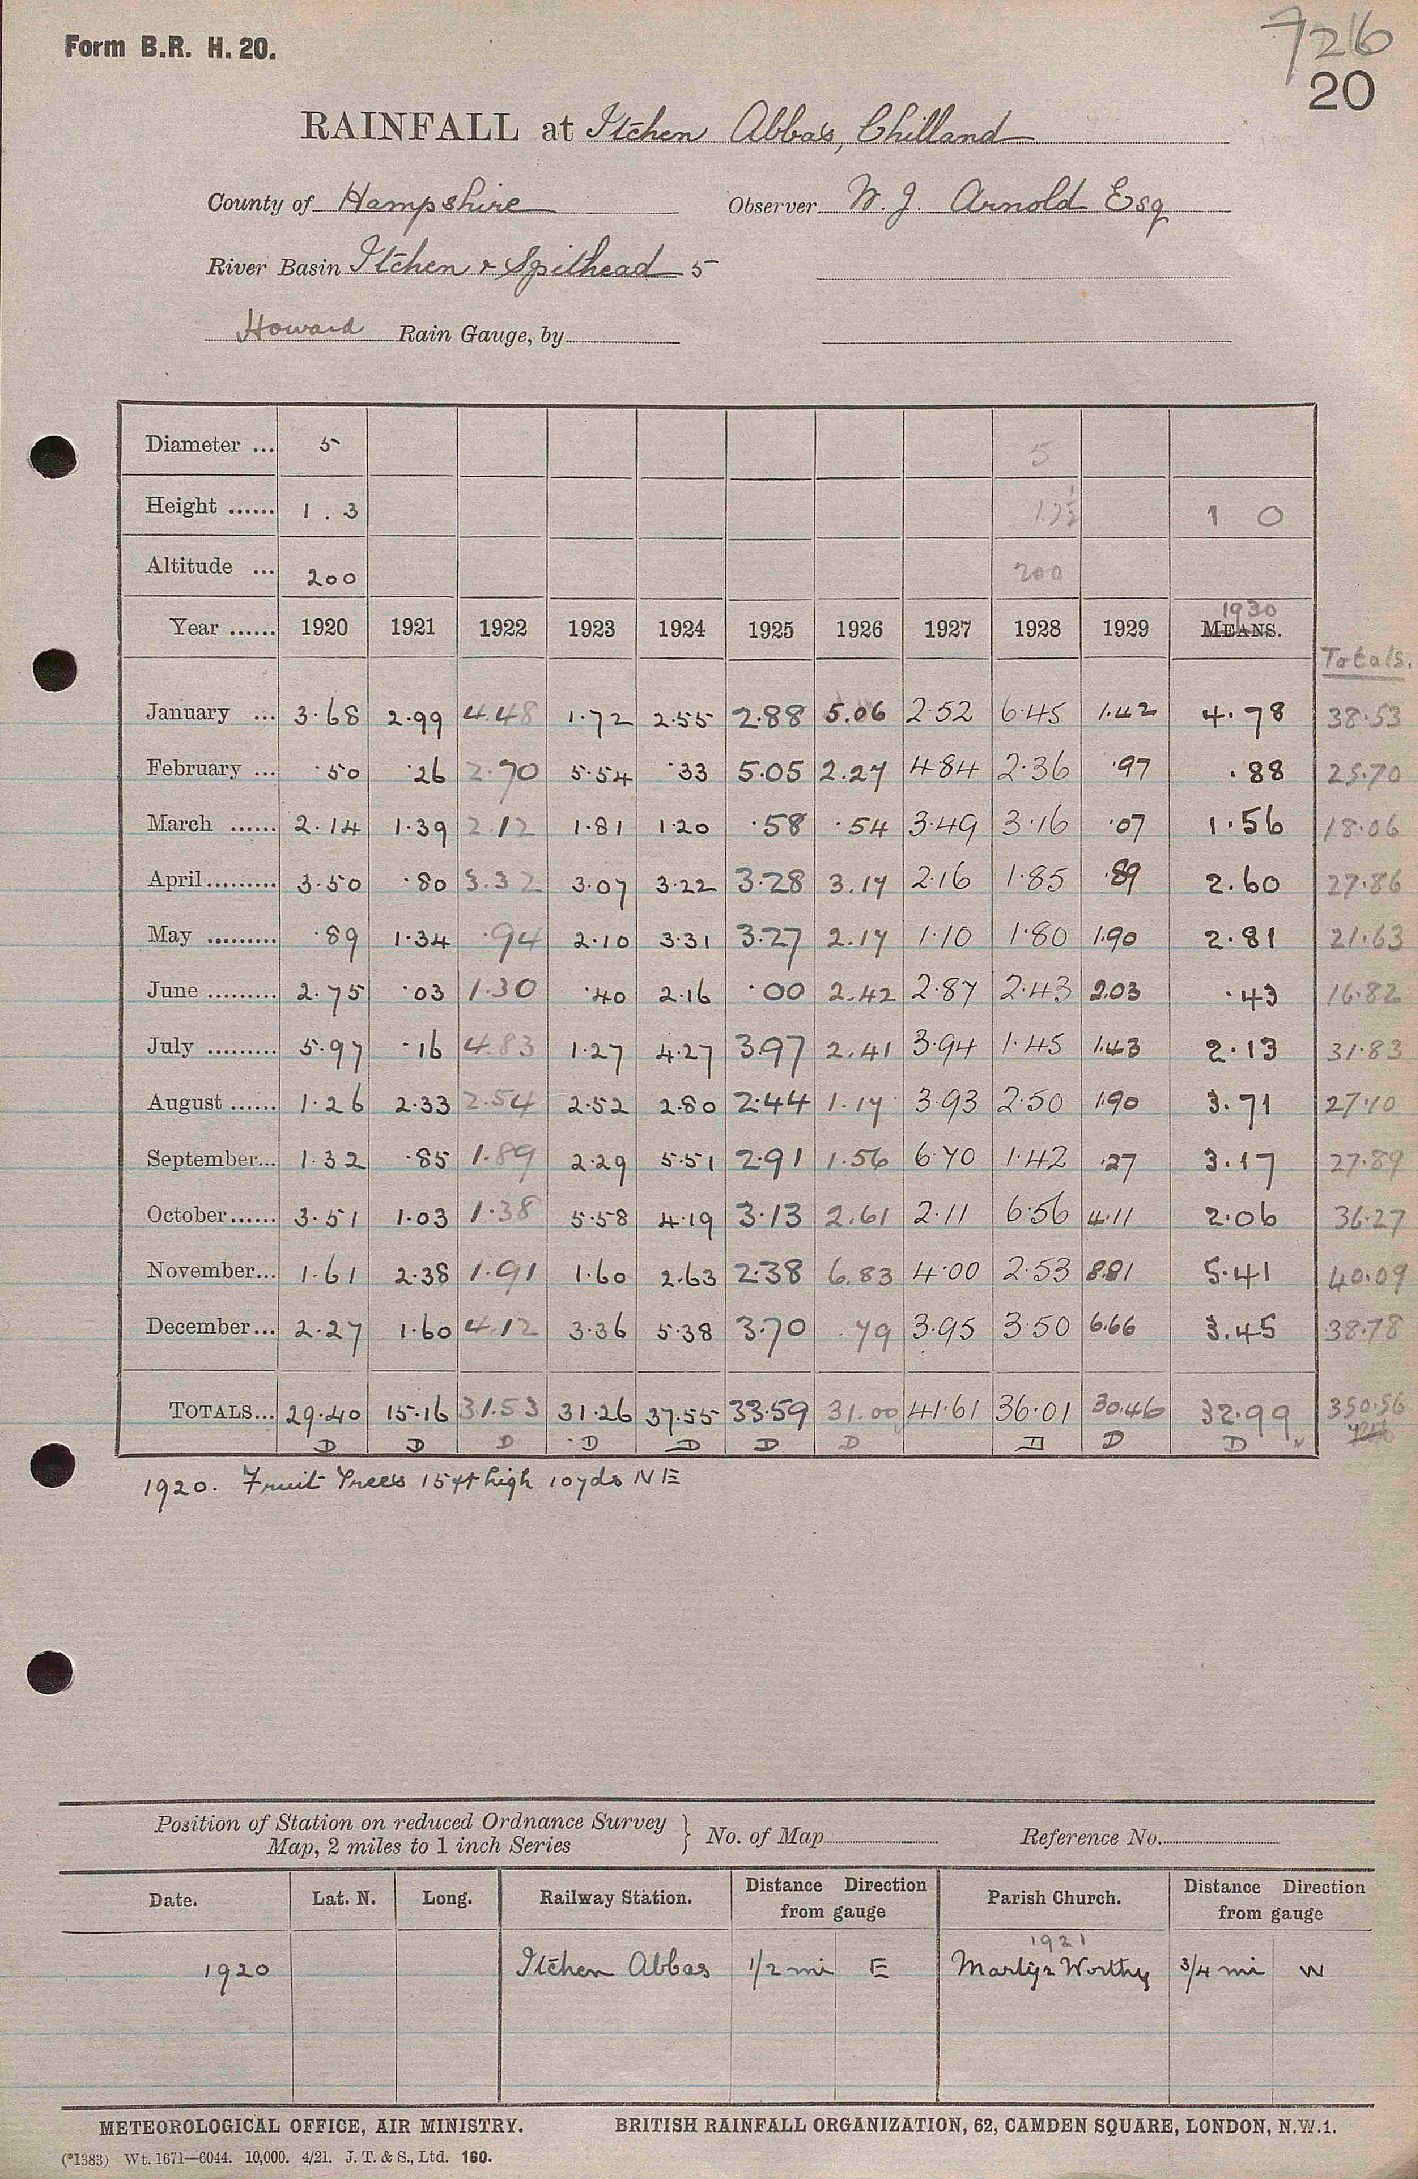 Form B.R. H. 20.
726
20
RAINFALL at Itchen Abbas, Chilland
County of Hampshire Observer W. J. Arnold Esq
River Basin Itchen & Spithead 5
Howard Rain Gauge, by
Diameter ... 5 5
Height ...... 1 . 3 1 0
Altitude ... 200 200
1930
Year ...... 1920 1921 1922 1923 1924 1925 1926 1927 1928 1929 MEANS.
Totals.
January ... 3.68 2.99 4.48 1.72 2.55 2.88 5.06 2.52 6.45 1.42 4.78 38.53
February ... .50 .26 2.70 5.54 .33 5.05 2.27 4.84 2.36 .97 .88 25.70
March ...... 2.14 1.39 2.12 1.81 1.20 .58 .54 3.49 3.16 .07 1.56 18.06
April......... 3.50 .80 3.32 3.07 3.22 3.28 3.17 2.16 1.85 .89 2.60 27.86
May ......... .89 1.34 .94 2.10 3.31 3.27 2.17 1.10 1.80 1.90 2.81 21.63
June ......... 2.75 .03 1.30 .40 2.16 .00 2.42 2.87 2.43 2.03 .43 16.82
July ......... 5.97 .16 4.83 1.27 4.27 3.97 2.41 3.94 1.45 1.43 2.13 31.83
August ...... 1.26 2.33 2.54 2.52 2.80 2.44 1.17 3.93 2.50 1.90 3.71 27.10
September... 1.32 .85 1.89 2.29 5.51 2.91 1.56 6.70 1.42 .27 3.17 27.89
October...... 3.51 1.03 1.38 5.58 4.19 3.13 2.61 2.11 6.56 4.11 2.06 36.27
November... 1.61 2.38 1.91 1.60 2.63 2.38 6.83 4.00 2.53 8.81 5.41 40.09
December... 2.27 1.60 4.12 3.36 5.38 3.70 .79 3.95 3.50 6.66 3.45 38.78
TOTALS... 29.40 15.16 31.53 31.26 37.55 33.59 31.00 41.61 36.01 30.46 32.99 350.56
D D D D D D D D D D
1920. Fruit Trees 15 ft high 10yds NE
Position of Station on reduced Ordnance Survey
Map, 2 miles to 1 inch Series } No. of Map Reference No.
Date. Lat. N. Long. Railway Station. Distance Direction from gauge Parish Church. Distance Direction from gauge
1921
1920 Itchen Abbas 1/2 mi E Martyr Worthy 3/4 mi W
METEOROLOGICAL OFFICE, AIR MINISTRY. BRITISH RAINFALL ORGANIZATION, 62, CAMDEN SQUARE, LONDON, N.W.1.
(*1383) Wt. 1671—6044. 10,000. 4/21. J. T. & S., Ltd. 160.